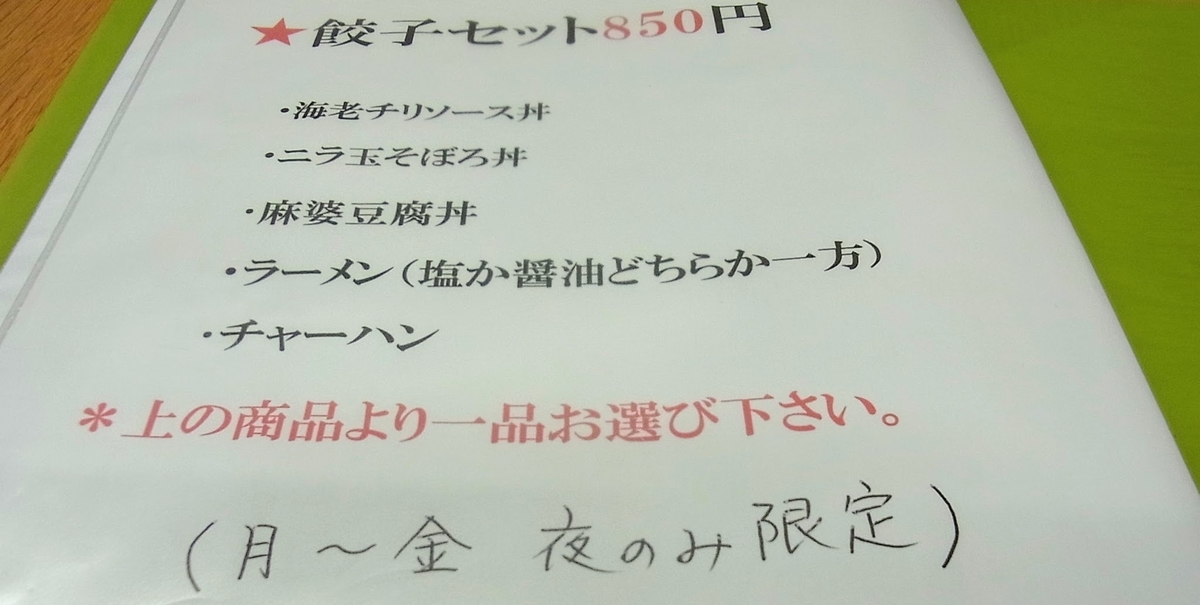 ★餃子セット850円
・海老チリソース丼
・ニラ玉そぼろ丼
・麻婆豆腐丼
・ラーメン(塩か醤油どちらか一方)
・チャーハン
＊上の商品より一品お選び下さい。
(月〜金 夜のみ限定)